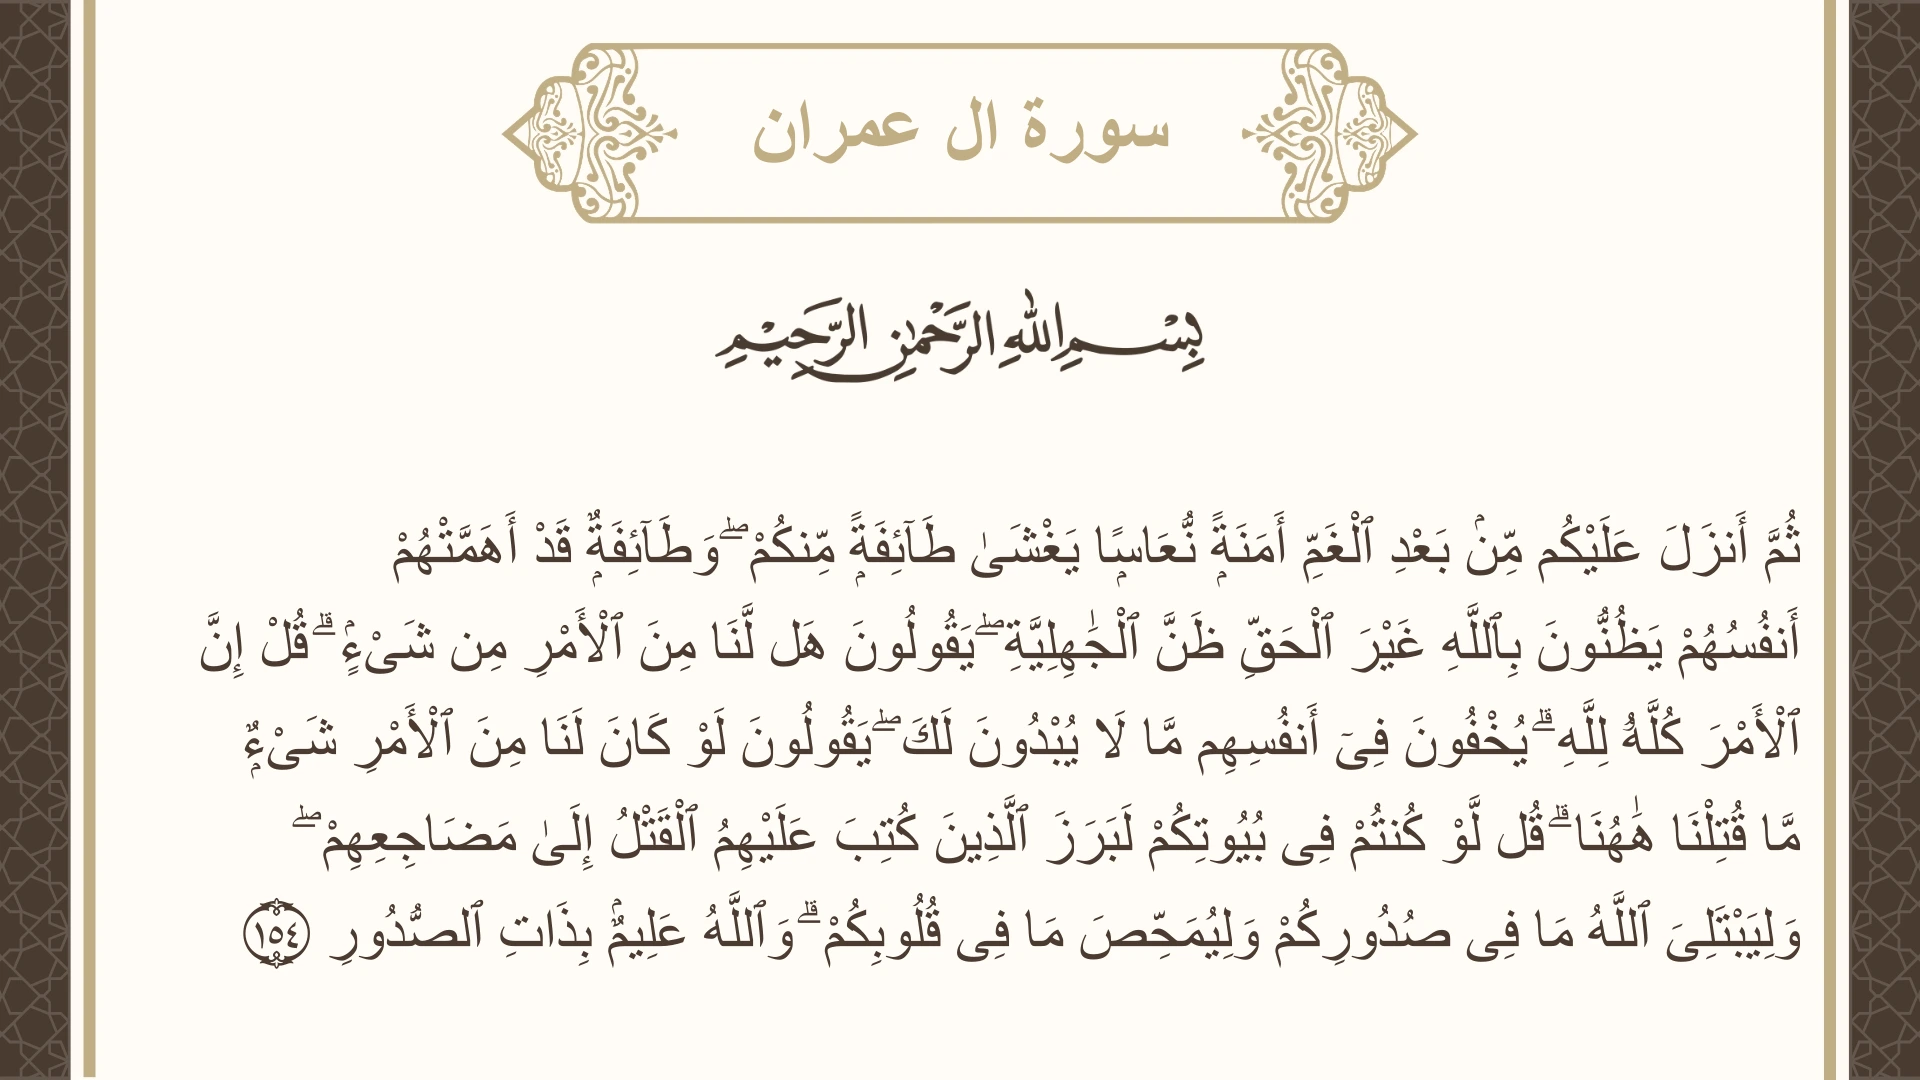 سورة ال عمران
بِسْمِ اللهِ الرَّحْمٰنِ الرَّحِيْمِ
ثُمَّ أَنزَلَ عَلَيْكُم مِّنۢ بَعْدِ ٱلْغَمِّ أَمَنَةًۭ نُّعَاسًۭا يَغْشَىٰ طَآئِفَةًۭ مِّنكُمْ ۖ وَطَآئِفَةٌۭ قَدْ أَهَمَّتْهُمْ
أَنفُسُهُمْ يَظُنُّونَ بِٱللَّهِ غَيْرَ ٱلْحَقِّ ظَنَّ ٱلْجَٰهِلِيَّةِ ۖ يَقُولُونَ هَل لَّنَا مِنَ ٱلْأَمْرِ مِن شَىْءٍۢ ۗ قُلْ إِنَّ
ٱلْأَمْرَ كُلَّهُۥ لِلَّهِ ۗ يُخْفُونَ فِىٓ أَنفُسِهِم مَّا لَا يُبْدُونَ لَكَ ۖ يَقُولُونَ لَوْ كَانَ لَنَا مِنَ ٱلْأَمْرِ شَىْءٌۭ
مَّا قُتِلْنَا هَٰهُنَا ۗ قُل لَّوْ كُنتُمْ فِى بُيُوتِكُمْ لَبَرَزَ ٱلَّذِينَ كُتِبَ عَلَيْهِمُ ٱلْقَتْلُ إِلَىٰ مَضَاجِعِهِمْ ۖ
وَلِيَبْتَلِىَ ٱللَّهُ مَا فِى صُدُورِكُمْ وَلِيُمَحِّصَ مَا فِى قُلُوبِكُمْ ۗ وَٱللَّهُ عَلِيمٌۢ بِذَاتِ ٱلصُّدُورِ ١٥٤